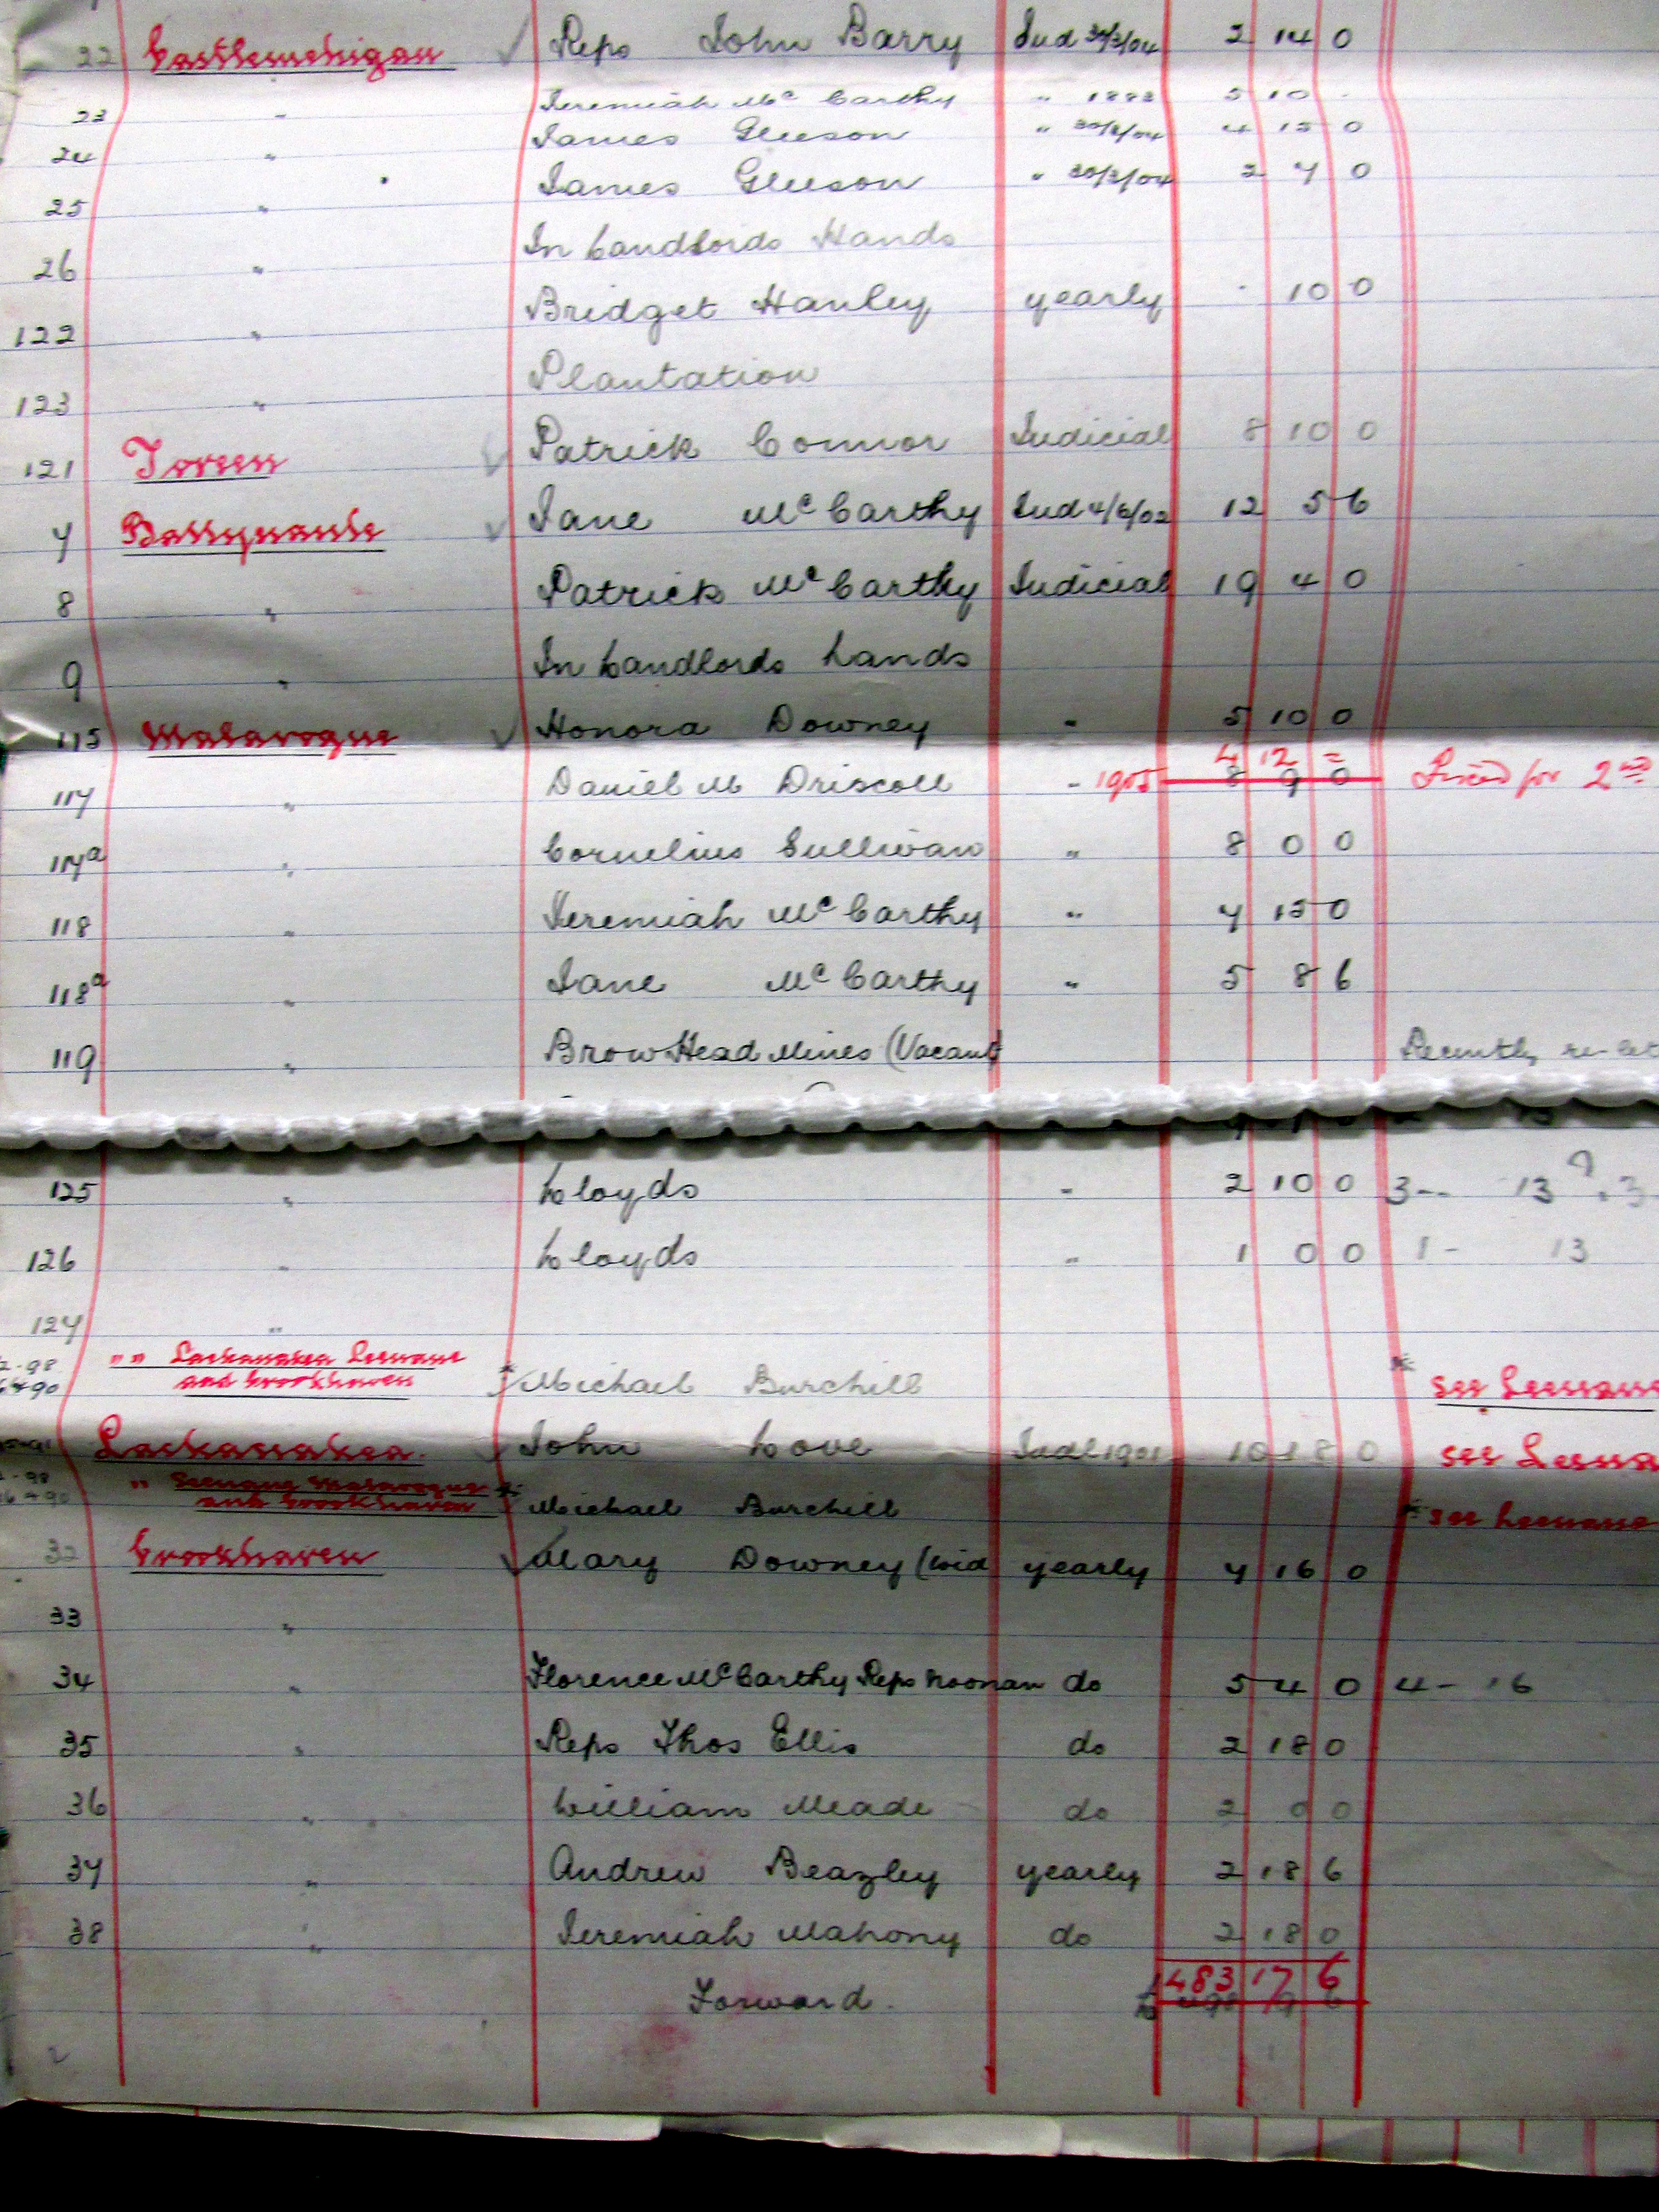 22 Castlemehigan Reps John Barry Jud 30/3/04 2 14 0
23 " Jeremiah McCarthy " 1882 5 10 -
24 " James Gleeson " 4 15 0
25 " James Gleeson " 30/3/04 2 7 0
26 " In Landlords Hands
122 " Bridget Hanley yearly - 10 0
123 " Plantation
121 Toreen Patrick Connor Judicial 8 10 0
7 Ballynaule Jane McCarthy Jud 4/6/02 12 5 6
8 " Patrick McCarthy Judicial 19 4 0
9 " In Landlords hands
115 Malavogue Honora Downey " 5 10 0
4 12 =
117 " Daniel M Driscoll " 1905 8 9 0 Fixed for 2nd
117a " Cornelius Sullivan " 8 0 0
118 " Jeremiah McCarthy " 7 15 0
118a " Jane McCarthy " 5 8 6
119 " Brow Head Mines (Vacant) Recently re-let
125 " Lloyds " 2 10 0 3-- 13
126 " Lloyds " 1 0 0 1- 13
127 "
" " Lackanakea Leenane
and Crookhaven Michael Burchill see Leenane
Lackanakea John Love Judl 1901 10 18 0 see Leena
" Leenane Malavogue
and Crookhaven Michael Burchill see Leenane
32 Crookhaven Mary Downey (Wid yearly 7 16 0
33 "
34 " Florence McCarthy Reps Noonan do 5 4 0 4- 16
35 " Reps Thos Ellis do 2 18 0
36 " William Meade do 2 0 0
37 " Andrew Beazley yearly 2 18 6
38 " Jeremiah Mahony do 2 18 0
483 17 6
Forward. £